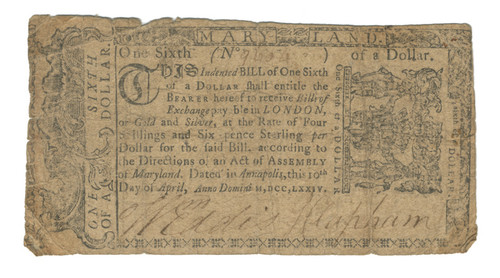 MARYLAND.
One Sixth (No ) of a Dollar.
THIS Indented BILL of One Sixth
of a DOLLAR shall entitle the
BEARER hereof to receive Bills of
Exchange payable in LONDON,
or Gold and Silver, at the Rate of Four
Shillings and Six-pence Sterling per
Dollar for the said Bill, according to
the Directions of an Act of ASSEMBLY
of Maryland. Dated in Annapolis, this 10th
Day of April, Anno Domini M,DCC,LXXIV.
Wm Eddis Clapham
ONE SIXTH
OF A DOLLAR.
One Sixth of a DOLLAR